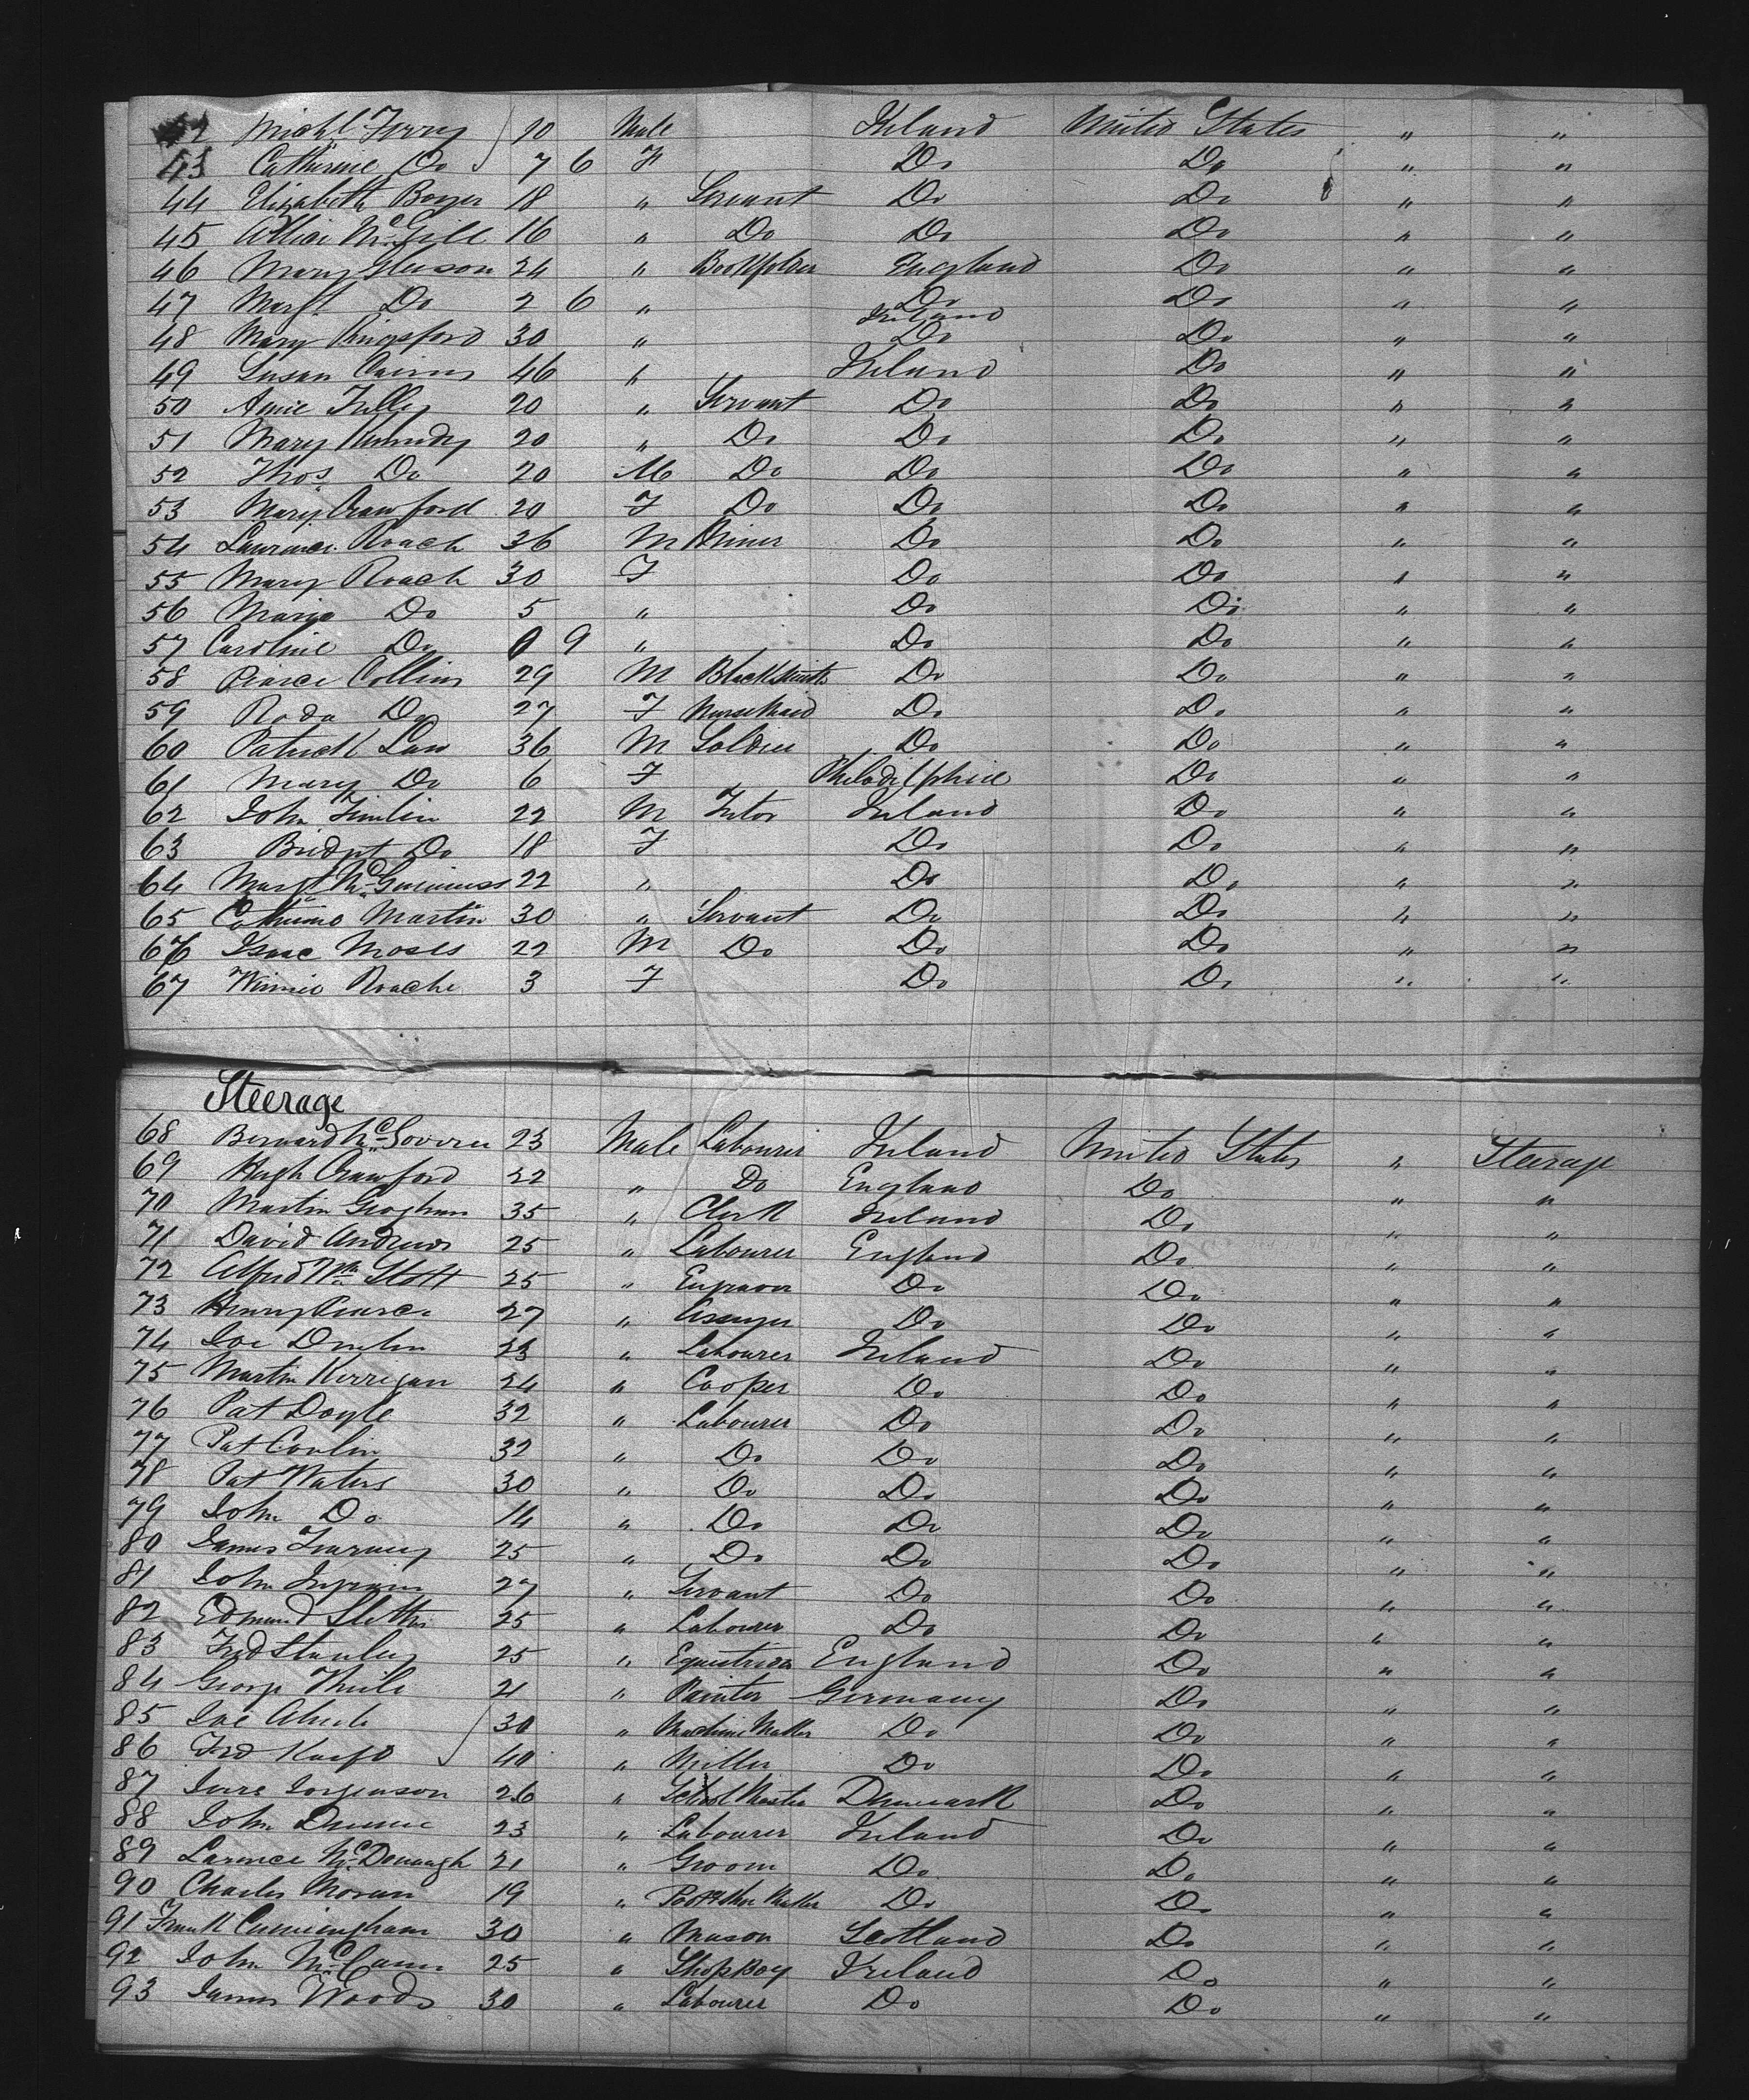 Michl Ferry 10 Male Ireland United States " "
43 Catherine Do 7 6 F Do Do " "
44 Elizabeth Boyer 18 " Servant Do Do " "
45 McGill 16 " Do Do Do " "
46 Mary Gleeson 24 " Bookfolder England Do " "
47 Margt Do 2 6 " Do Do " "
Ireland
48 Mary Kingsford 30 " Do Do " "
49 Susan Cairns 46 " Ireland Do " "
50 Annie 20 " Servant Do Do " "
51 Mary Kennedy 20 " Do Do Do " "
52 Thos Do 20 M Do Do Do " "
53 Mary Crawford 20 F Do Do Do " "
54 Lawrence Roach 36 M Miner Do Do " "
55 Mary Roach 30 F Do Do " "
56 Maria Do 5 " Do Do " "
57 Caroline Do 0 9 " Do Do " "
58 Pearce Collins 29 M Blacksmith Do Do " "
59 Roda Do 27 F Nursemaid Do Do " "
60 Patrick Law 36 M Soldier Do Do " "
61 Mary Do 6 F Philadelphia Do " "
62 John Timlin 22 M Ireland Do " "
63 Bridgt Do 18 F Do Do " "
64 Margt McGuinness 22 " Do Do " "
65 Martin 30 " Servant Do Do " "
66 Isaac Moses 22 M Do Do Do " "
67 Winnie Roache 3 F Do Do " "
Steerage
68 Bernard McGovern 23 Male Labourer Ireland United States " Steerage
69 Hugh Crawford 22 " Do England Do " "
70 Martin Groghan 35 " Clerk Ireland Do " "
71 David Andrews 25 " Labourer England Do " "
72 Alfred Wm Stott 25 " Engraver Do Do " "
73 Henry Pearce 27 " Assayer Do Do " "
74 Joe 23 " Labourer Ireland Do " "
75 Martin Kerrigan 24 " Cooper Do Do " "
76 Pat Doyle 32 " Labourer Do Do " "
77 Pat Conlin 32 " Do Do Do " "
78 Pat Waters 30 " Do Do Do " "
79 John Do 14 " Do Do Do " "
80 James 25 " Do Do Do " "
81 John Ingram 27 " Servant Do Do " "
82 Edmund 25 " Labourer Do Do " "
83 Fred Stanley 25 " Equestrian England Do " "
84 George Thiele 21 " Painter Germany Do " "
85 Joe 30 " Machine Maker Do Do " "
86 Fred 40 " Miller Do Do " "
87 Jorgenson 26 " School Master Denmark Do " "
88 John Dunne 23 " Labourer Ireland Do " "
89 Larence McDonaugh 21 " Groom Do Do " "
90 Charles Moran 19 " Boot & Shoe Maker Do Do " "
91 Frank Cunningham 30 " Mason Scotland Do " "
92 John McCann 25 " Shopboy Ireland Do " "
93 James Woods 30 " Labourer Do Do " "